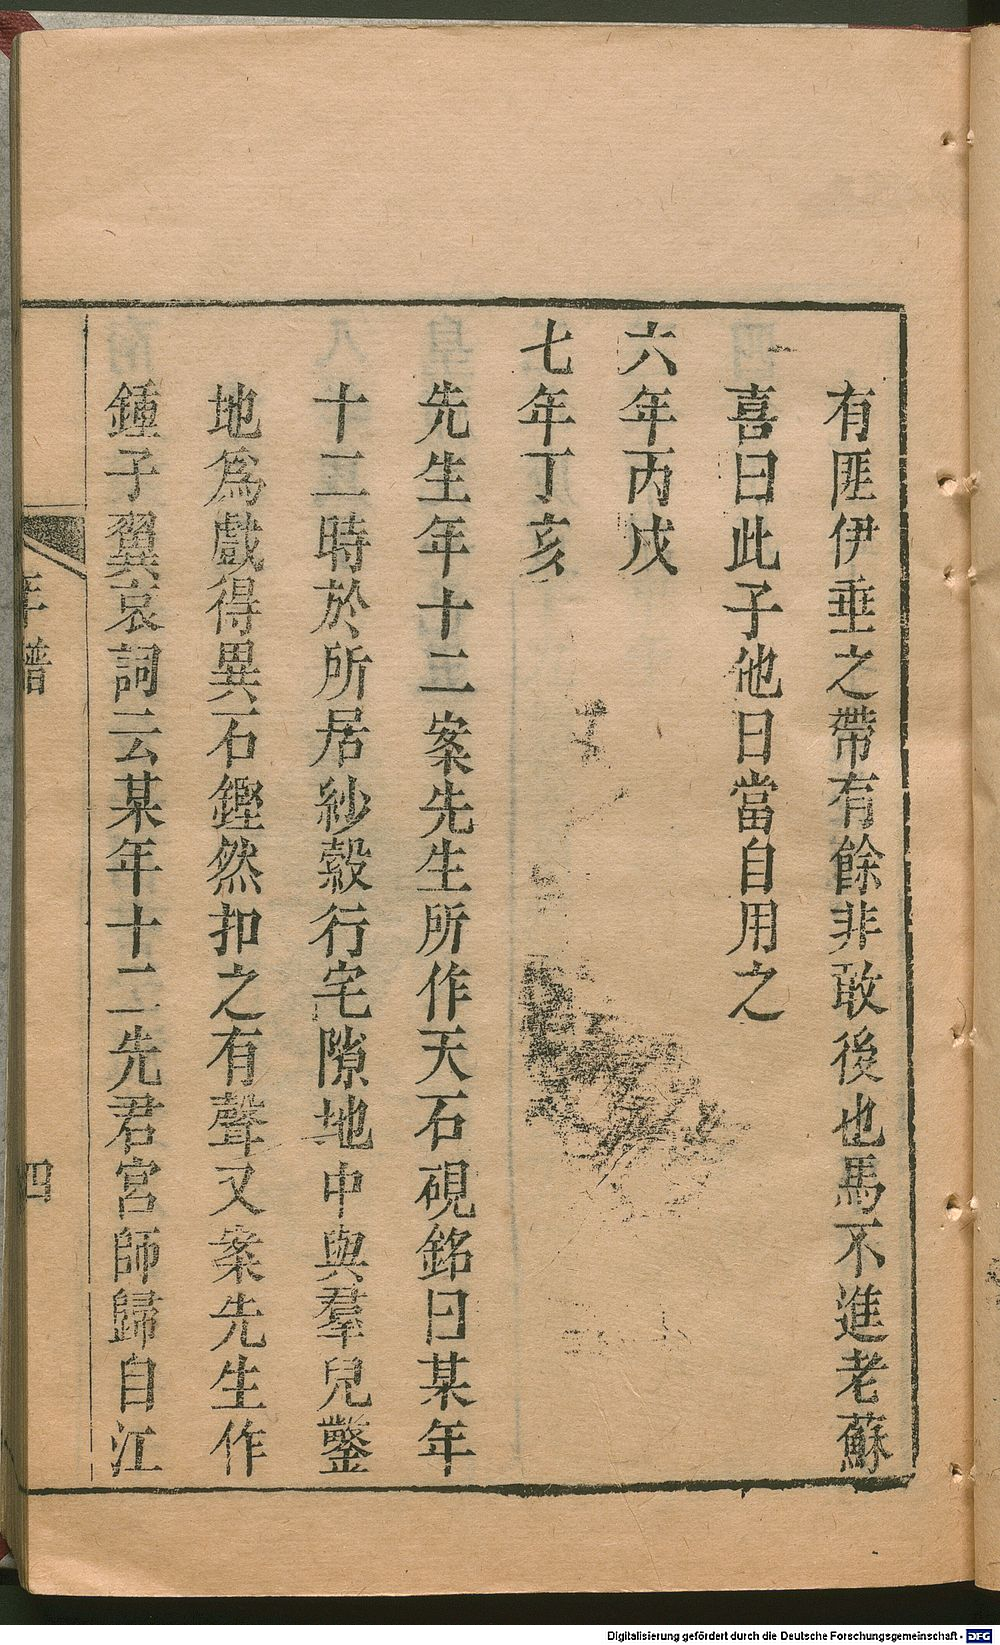 有匪伊垂之帶有餘非敢後也馬不進老蘇
喜曰此子他日當自用之
六年丙戌
七年丁亥
先生年十二案先生所作天石硯銘曰某年
十二時於所居紗縠行宅隙地中與羣兒鑿
地爲戲得異石鏗然扣之有聲又案先生作
鍾子翼哀詞云某年十二先君宮師歸自江
年譜
四
Digitalisierung gefördert durch die Deutsche Forschungsgemeinschaft - DFG